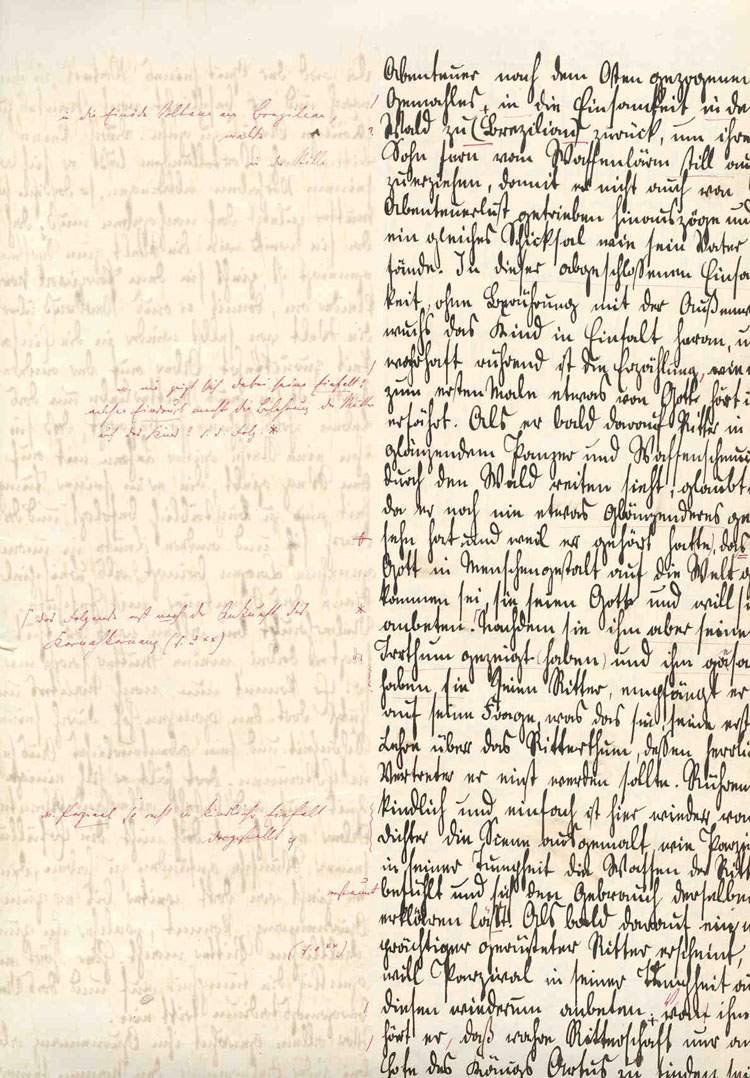 Abenteuer nach dem Osten gezogenen
Gemahles, in die Einsamkeit in de
Wald zu (Brezilian) zurück, um ihre
Sohn fern vom Waffenlärm still au
zuerziehen, damit er nicht auch von
Abenteuerlust getrieben hinauszöge un
ein gleiches Schicksal wie sein Vater
fände. In dieser abgeschlossenen Einsa
keit, ohne Berührung mit der Außenw
wuchs das Kind in Einfalt heran, u
wahrhaft rührend ist die Erzählung, wie
zum ersten Male etwas von Gott hört
erfährt. Als er bald darauf Ritter in
glänzendem Panzer und Waffenschmu
durch den Wald reiten sieht, glaubt
da er noch nie etwas Glänzenderes ge
sehn hat und weil er gehört hatte, das
Gott in Menschengestalt auf die Welt g
kommen sei, sie seien Gott und will s
anbeten. Nachdem sie ihm aber seine
Irrthum gezeigt (haben) und ihm gesa
haben, sie seien Ritter, empfängt er
auf seine Frage, was das sei, seine erst
Lehre über das Ritterthum, dessen herrli
Vertreter er einst werden sollte. Rühren
kindlich und einfach ist hier wieder vo
dichter die Scene ausgemalt, wie Parzi
in seiner Tumpheit die Waffen der Ritt
befühlt und sich den Gebrauch derselbe
erklären läßt. Als bald darauf ein
prächtiger gerüsteter Ritter erscheint,
will Parzival in seiner Tumpheit au
diesen wiederum anbeten; von ihm
hört er, daß wahre Ritterschaft nur a
Hofe des Königs Artus zu finden sei
in die Einöde Soltane in Brezilian,
in der Stille
w. wie zeigt sich dabei seine Einfalt?
welchen Eindruck macht die Belehrung der Mutter
auf das Kind? s. d. Folg. *
[das Folgende erst nach der Ankunft des
Karnahkarnanz (s. 3 xx)
w. Parzival so recht in kindlicher Einfalt
dargestellt